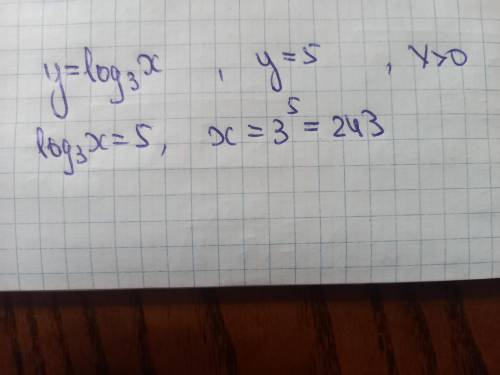 y=log₃x , y=5 , x>0
log₃x=5, x=3⁵=243